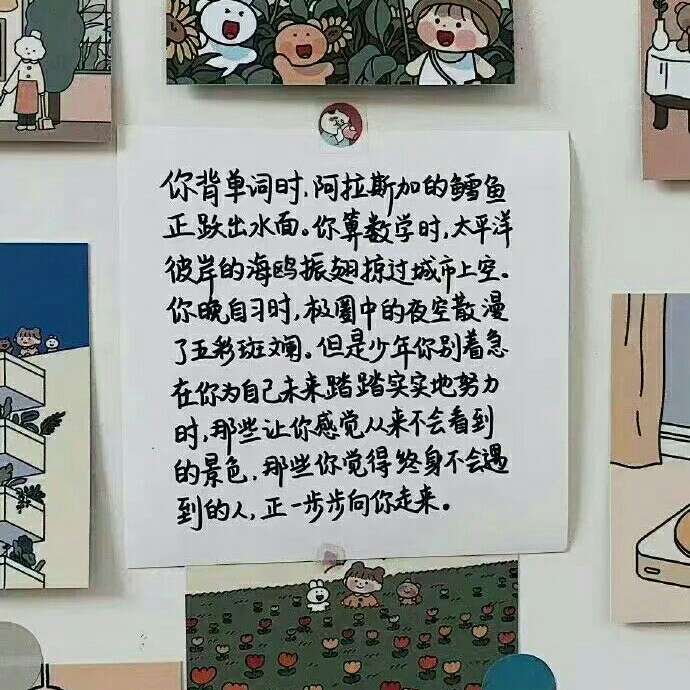 你背单词时，阿拉斯加的鳕鱼
正跃出水面。你算数学时，太平洋
彼岸的海鸥振翅掠过城市上空。
你晚自习时，极圈中的夜空散漫
了五彩斑斓。但是少年你别着急
在你为自己未来踏踏实实地努力
时，那些让你感觉从来不会看到
的景色，那些你觉得终身不会遇
到的人，正一步步向你走来。